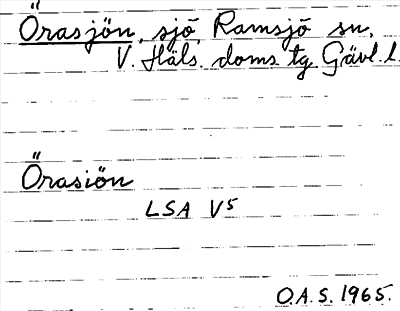 Örasjön, sjö, Ramsjö sn,
V. Häls. doms. tg Gävl. l.
Örasiön
LSA V5
O.A.S. 1965.